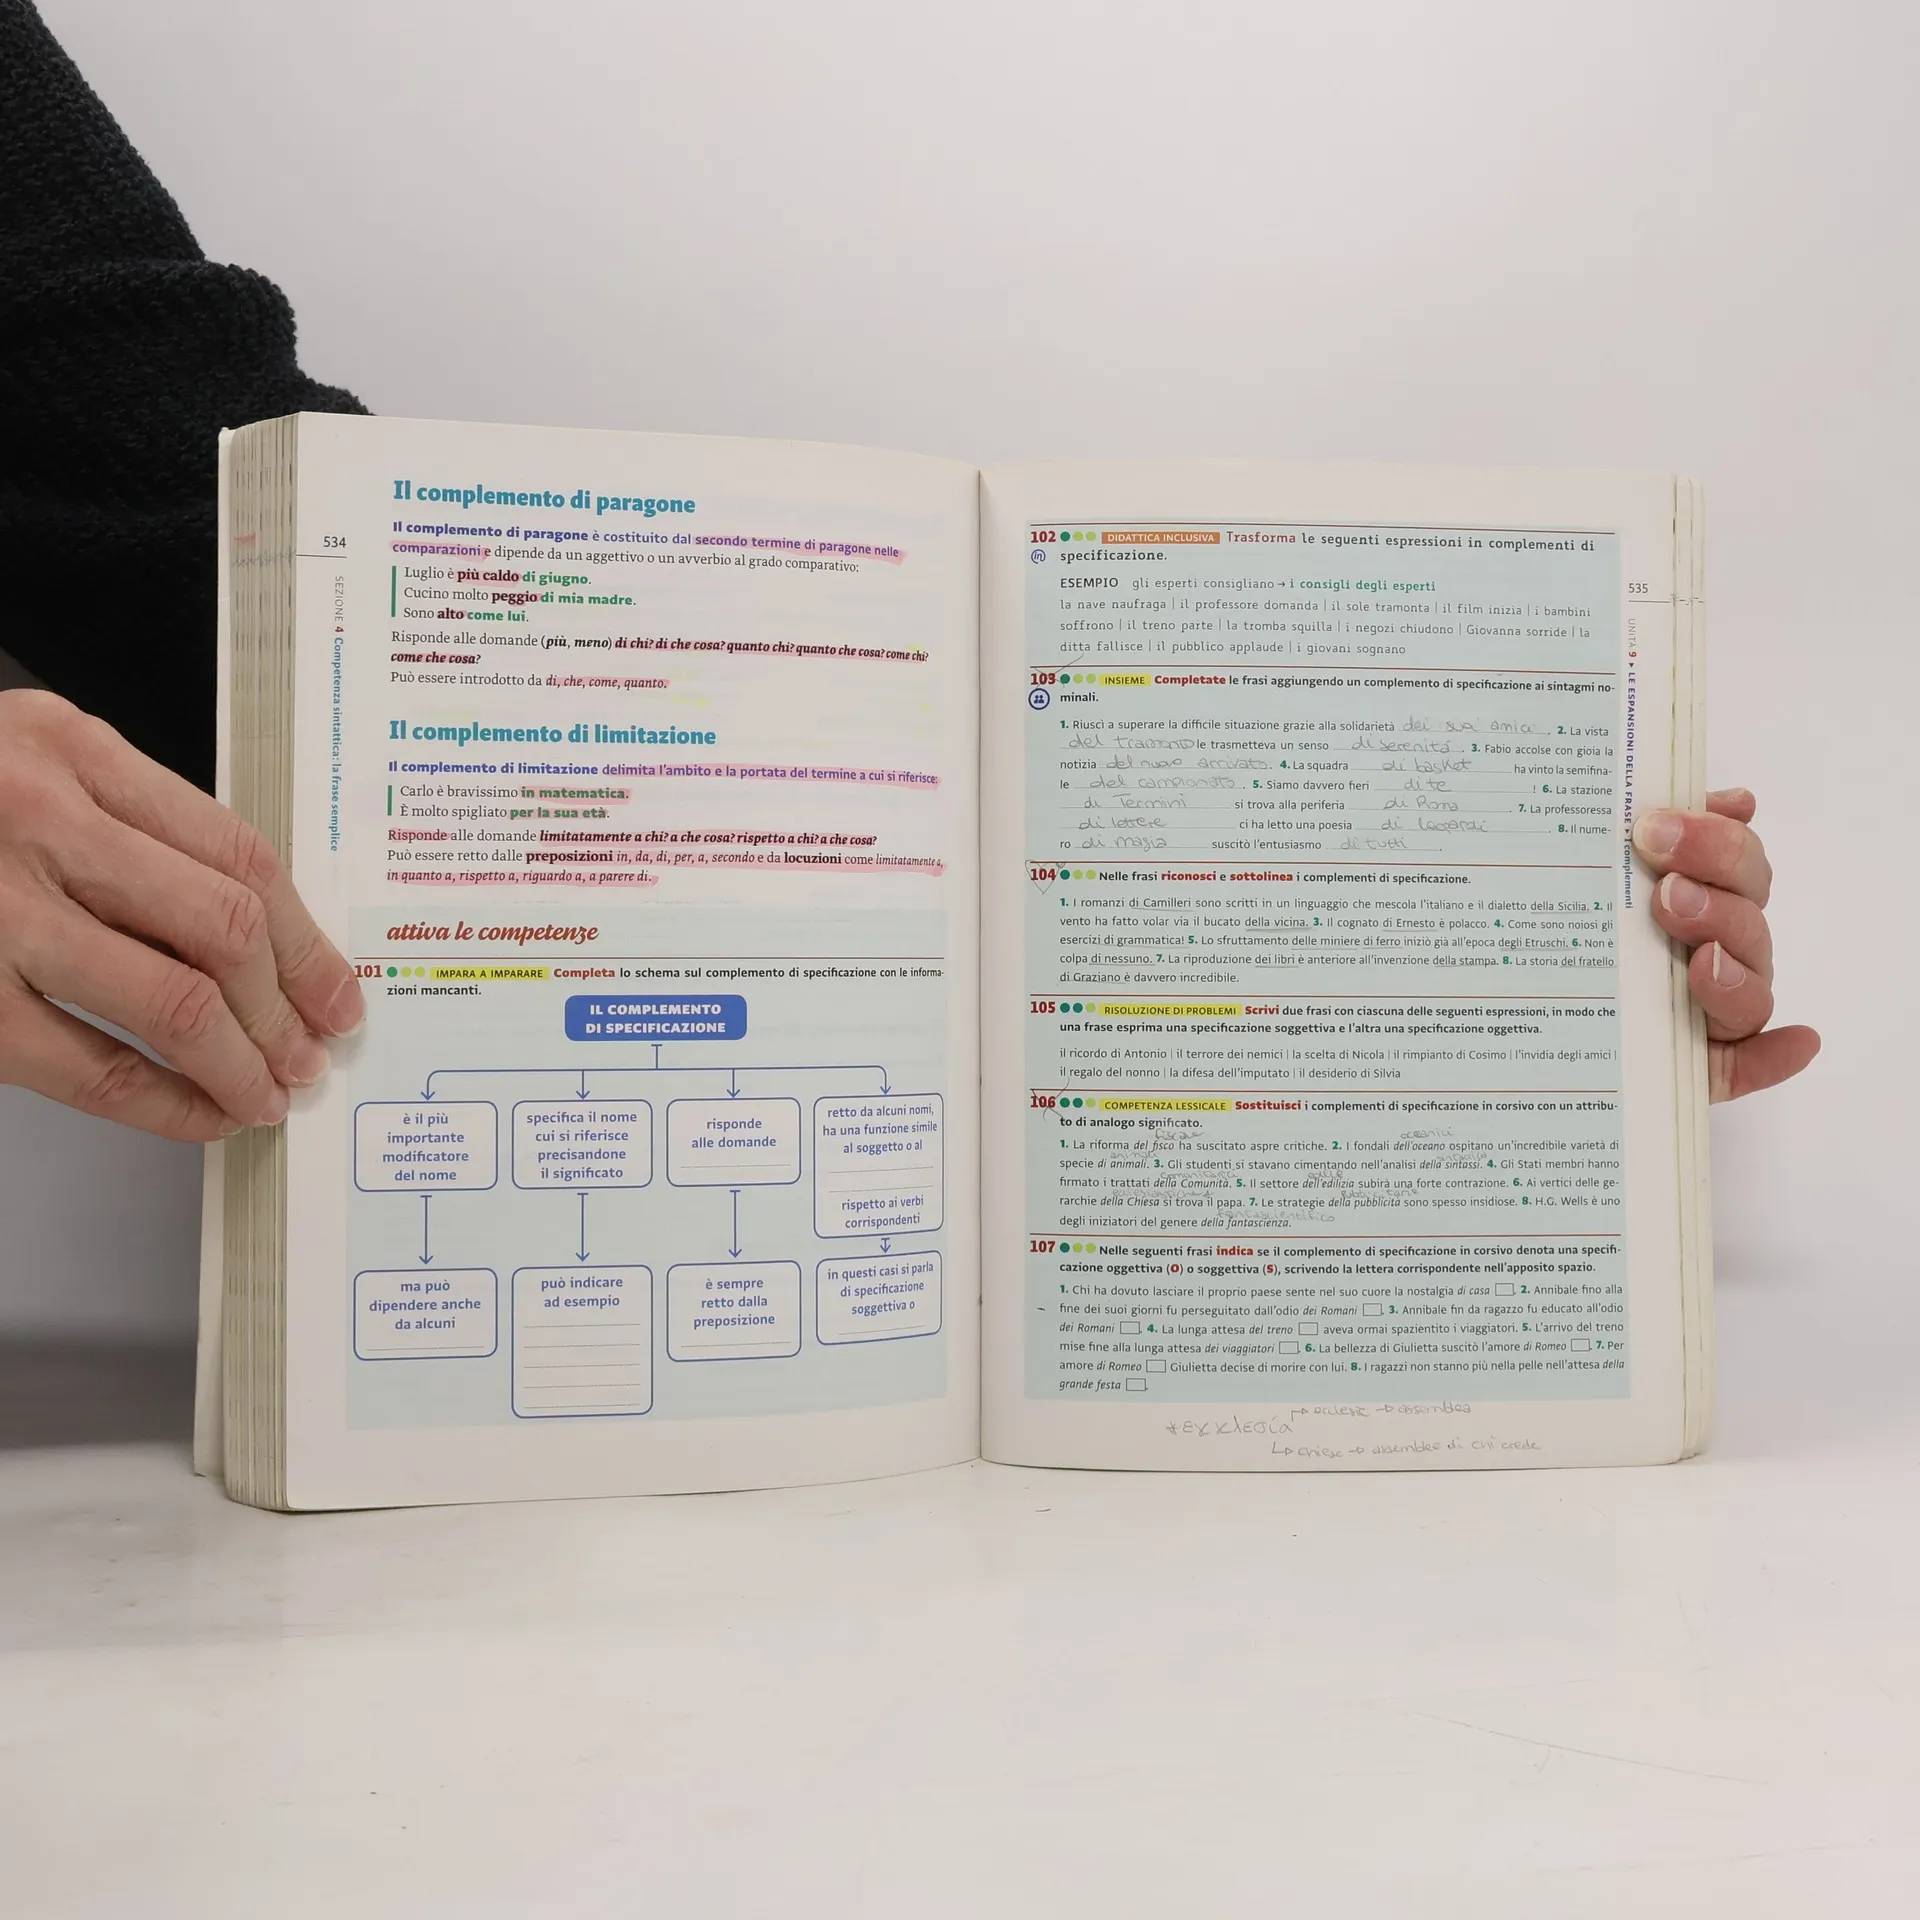 534
SEZIONE 4 Competenza sintattica: la frase semplice
Il complemento di paragone
Il complemento di paragone è costituito dal secondo termine di paragone nelle
comparazioni e dipende da un aggettivo o un avverbio al grado comparativo:
Luglio è più caldo di giugno.
Cucino molto peggio di mia madre.
Sono alto come lui.
Risponde alle domande (più, meno) di chi? di che cosa? quanto chi? quanto che cosa? come chi?
come che cosa?
Può essere introdotto da di, che, come, quanto.
Il complemento di limitazione
Il complemento di limitazione delimita l'ambito e la portata del termine a cui si riferisce:
Carlo è bravissimo in matematica.
È molto spigliato per la sua età.
Risponde alle domande limitatamente a chi? a che cosa? rispetto a chi? a che cosa?
Può essere retto dalle preposizioni in, da, di, per, a, secondo e da locuzioni come limitatamente a,
in quanto a, rispetto a, riguardo a, a parere di.
attiva le competenze
101 IMPARA A IMPARARE Completa lo schema sul complemento di specificazione con le informa-
zioni mancanti.
IL COMPLEMENTO
DI SPECIFICAZIONE
è il più
importante
modificatore
del nome
ma può
dipendere anche
da alcuni
specifica il nome
cui si riferisce
precisandone
il significato
può indicare
ad esempio
risponde
alle domande
è sempre
retto dalla
preposizione
retto da alcuni nomi,
ha una funzione simile
al soggetto o al
rispetto ai verbi
corrispondenti
in questi casi si parla
di specificazione
soggettiva o
102 DIDATTICA INCLUSIVA Trasforma le seguenti espressioni in complementi di
(in) specificazione.
ESEMPIO gli esperti consigliano → i consigli degli esperti
la nave naufraga | il professore domanda | il sole tramonta | il film inizia | i bambini
soffrono | il treno parte | la tromba squilla | i negozi chiudono | Giovanna sorride | la
ditta fallisce | il pubblico applaude | i giovani sognano
103 INSIEME Completate le frasi aggiungendo un complemento di specificazione ai sintagmi no-
minali.
1. Riuscì a superare la difficile situazione grazie alla solidarietà dei suoi amici. 2. La vista
del tramonto le trasmetteva un senso di serenità. 3. Fabio accolse con gioia la
notizia del nuovo arrivato. 4. La squadra di basket ha vinto la semifina-
le del campionato. 5. Siamo davvero fieri di te ! 6. La stazione
di Termini si trova alla periferia di Roma. 7. La professoressa
di lettere ci ha letto una poesia di leopardi. 8. Il nume-
ro di magia suscitò l'entusiasmo di tutti.
104 Nelle frasi riconosci e sottolinea i complementi di specificazione.
1. I romanzi di Camilleri sono scritti in un linguaggio che mescola l'italiano e il dialetto della Sicilia. 2. Il
vento ha fatto volar via il bucato della vicina. 3. Il cognato di Ernesto è polacco. 4. Come sono noiosi gli
esercizi di grammatica! 5. Lo sfruttamento delle miniere di ferro iniziò già all'epoca degli Etruschi. 6. Non è
colpa di nessuno. 7. La riproduzione dei libri è anteriore all'invenzione della stampa. 8. La storia del fratello
di Graziano è davvero incredibile.
105 RISOLUZIONE DI PROBLEMI Scrivi due frasi con ciascuna delle seguenti espressioni, in modo che
una frase esprima una specificazione soggettiva e l'altra una specificazione oggettiva.
il ricordo di Antonio | il terrore dei nemici | la scelta di Nicola | il rimpianto di Cosimo | l'invidia degli amici |
il regalo del nonno | la difesa dell'imputato | il desiderio di Silvia
106 COMPETENZA LESSICALE Sostituisci i complementi di specificazione in corsivo con un attribu-
to di analogo significato.
fiscale oceanici
1. La riforma del fisco ha suscitato aspre critiche. 2. I fondali dell'oceano ospitano un'incredibile varietà di
animali
specie di animali. 3. Gli studenti si stavano cimentando nell'analisi della sintassi. 4. Gli Stati membri hanno
comunitari edile
firmato i trattati della Comunità. 5. Il settore dell'edilizia subirà una forte contrazione. 6. Ai vertici delle ge-
pubblicitarie
rarchie della Chiesa si trova il papa. 7. Le strategie della pubblicità sono spesso insidiose. 8. H.G. Wells è uno
fantascientifico
degli iniziatori del genere della fantascienza.
107 Nelle seguenti frasi indica se il complemento di specificazione in corsivo denota una specifi-
cazione oggettiva (O) o soggettiva (S), scrivendo la lettera corrispondente nell'apposito spazio.
1. Chi ha dovuto lasciare il proprio paese sente nel suo cuore la nostalgia di casa. 2. Annibale fino alla
fine dei suoi giorni fu perseguitato dall'odio dei Romani. 3. Annibale fin da ragazzo fu educato all'odio
dei Romani. 4. La lunga attesa del treno aveva ormai spazientito i viaggiatori. 5. L'arrivo del treno
mise fine alla lunga attesa dei viaggiatori. 6. La bellezza di Giulietta suscitò l'amore di Romeo. 7. Per
amore di Romeo Giulietta decise di morire con lui. 8. I ragazzi non stanno più nella pelle nell'attesa della
grande festa.
→ assemblea
↳ chiesa → assemblea di chi crede
535
UNITÀ 9 ▸ LE ESPANSIONI DELLA FRASE ▸ I complementi